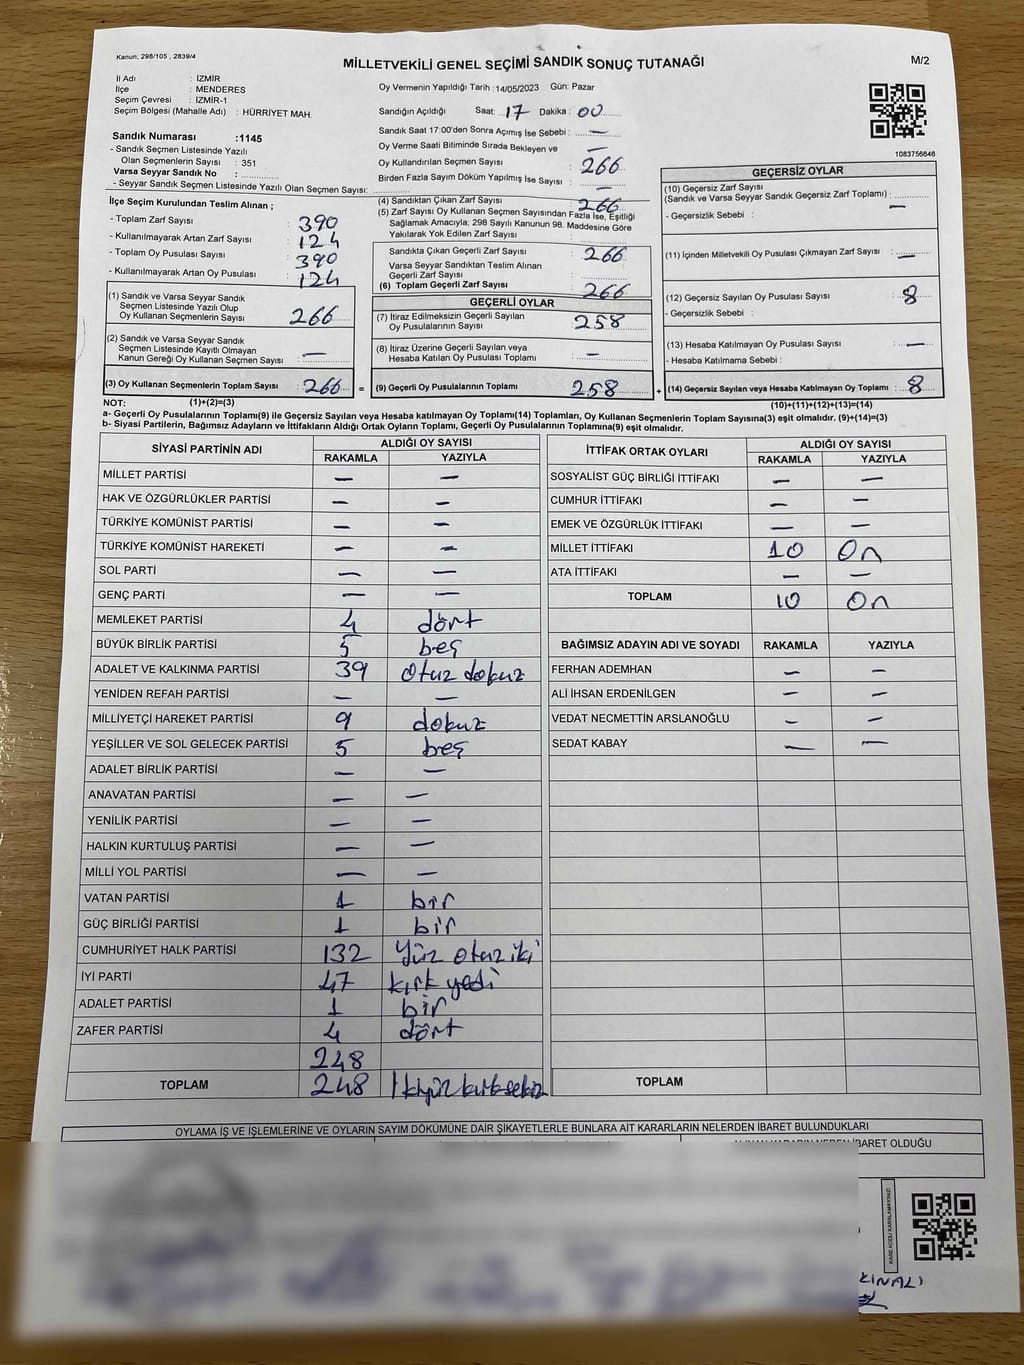 Kanun; 298/105 , 2839/4
MİLLETVEKİLİ GENEL SEÇİMİ SANDIK SONUÇ TUTANAĞI
M/2
İl Adı : İZMİR
İlçe : MENDERES
Seçim Çevresi : İZMİR-1
Seçim Bölgesi (Mahalle Adı) : HÜRRİYET MAH.
Sandık Numarası :1145
- Sandık Seçmen Listesinde Yazılı
Olan Seçmenlerin Sayısı : 351
Varsa Seyyar Sandık No :
- Seyyar Sandık Seçmen Listesinde Yazılı Olan Seçmen Sayısı:
Oy Vermenin Yapıldığı Tarih :14/05/2023 Gün: Pazar
Sandığın Açıldığı Saat: 17 Dakika : 00
Sandık Saat 17:00'den Sonra Açımış İse Sebebi : —
Oy Verme Saati Bitiminde Sırada Bekleyen ve —
Oy Kullandırılan Seçmen Sayısı : 266
Birden Fazla Sayım Döküm Yapılmış İse Sayısı : —
1083756646
İlçe Seçim Kurulundan Teslim Alınan ;
- Toplam Zarf Sayısı : 390
- Kullanılmayarak Artan Zarf Sayısı : 124
- Toplam Oy Pusulası Sayısı : 390
- Kullanılmayarak Artan Oy Pusulası : 124
(1) Sandık ve Varsa Seyyar Sandık
Seçmen Listesinde Yazılı Olup
Oy Kullanan Seçmenlerin Sayısı : 266
(2) Sandık ve Varsa Seyyar Sandık
Seçmen Listesinde Kayıtlı Olmayan
Kanun Gereği Oy Kullanan Seçmen Sayısı : —
(3) Oy Kullanan Seçmenlerin Toplam Sayısı : 266 =
(1)+(2)=(3)
(4) Sandıktan Çıkan Zarf Sayısı : 266
(5) Zarf Sayısı Oy Kullanan Seçmen Sayısından Fazla İse, Eşitliği
Sağlamak Amacıyla; 298 Sayılı Kanunun 98. Maddesine Göre
Yakılarak Yok Edilen Zarf Sayısı :
Sandıkta Çıkan Geçerli Zarf Sayısı : 266
Varsa Seyyar Sandıktan Teslim Alınan
Geçerli Zarf Sayısı :
(6) Toplam Geçerli Zarf Sayısı : 266
GEÇERLİ OYLAR
(7) İtiraz Edilmeksizin Geçerli Sayılan
Oy Pusulalarının Sayısı : 258
(8) İtiraz Üzerine Geçerli Sayılan veya
Hesaba Katılan Oy Pusulası Toplamı : —
(9) Geçerli Oy Pusulalarının Toplamı : 258 +
GEÇERSİZ OYLAR
(10) Geçersiz Zarf Sayısı
(Sandık ve Varsa Seyyar Sandık Geçersiz Zarf Toplamı) : —
- Geçersizlik Sebebi :
(11) İçinden Milletvekili Oy Pusulası Çıkmayan Zarf Sayısı : —
(12) Geçersiz Sayılan Oy Pusulası Sayısı : 8
- Geçersizlik Sebebi :
(13) Hesaba Katılmayan Oy Pusulası Sayısı : —
- Hesaba Katılmama Sebebi :
(14) Geçersiz Sayılan veya Hesaba Katılmayan Oy Toplamı : 8
(10)+(11)+(12)+(13)=(14)
NOT:
a- Geçerli Oy Pusulalarının Toplamı(9) ile Geçersiz Sayılan veya Hesaba katılmayan Oy Toplamı(14) Toplamları, Oy Kullanan Seçmenlerin Toplam Sayısına(3) eşit olmalıdır. (9)+(14)=(3)
b- Siyasi Partilerin, Bağımsız Adayların ve İttifakların Aldığı Ortak Oyların Toplamı, Geçerli Oy Pusulalarının Toplamına(9) eşit olmalıdır.
SİYASİ PARTİNİN ADI ALDIĞI OY SAYISI
RAKAMLA YAZIYLA
MİLLET PARTİSİ — —
HAK VE ÖZGÜRLÜKLER PARTİSİ — —
TÜRKİYE KOMÜNİST PARTİSİ — —
TÜRKİYE KOMÜNİST HAREKETİ — —
SOL PARTİ — —
GENÇ PARTİ — —
MEMLEKET PARTİSİ 4 dört
BÜYÜK BİRLİK PARTİSİ 5 beş
ADALET VE KALKINMA PARTİSİ 39 otuz dokuz
YENİDEN REFAH PARTİSİ — —
MİLLİYETÇİ HAREKET PARTİSİ 9 dokuz
YEŞİLLER VE SOL GELECEK PARTİSİ 5 beş
ADALET BİRLİK PARTİSİ — —
ANAVATAN PARTİSİ — —
YENİLİK PARTİSİ — —
HALKIN KURTULUŞ PARTİSİ — —
MİLLİ YOL PARTİSİ — —
VATAN PARTİSİ 1 bir
GÜÇ BİRLİĞİ PARTİSİ 1 bir
CUMHURİYET HALK PARTİSİ 132 Yüz otuz iki
İYİ PARTİ 47 kırk yedi
ADALET PARTİSİ 1 bir
ZAFER PARTİSİ 4 dört
248
TOPLAM 248 İkiyüz kırk sekiz
İTTİFAK ORTAK OYLARI ALDIĞI OY SAYISI
RAKAMLA YAZIYLA
SOSYALİST GÜÇ BİRLİĞİ İTTİFAKI — —
CUMHUR İTTİFAKI — —
EMEK VE ÖZGÜRLÜK İTTİFAKI — —
MİLLET İTTİFAKI 10 On
ATA İTTİFAKI — —
TOPLAM 10 On
BAĞIMSIZ ADAYIN ADI VE SOYADI RAKAMLA YAZIYLA
FERHAN ADEMHAN — —
ALİ İHSAN ERDENİLGEN — —
VEDAT NECMETTİN ARSLANOĞLU — —
SEDAT KABAY — —
TOPLAM
OYLAMA İŞ VE İŞLEMLERİNE VE OYLARIN SAYIM DÖKÜMÜNE DAİR ŞİKAYETLERLE BUNLARA AİT KARARLARIN NELERDEN İBARET BULUNDUKLARI
İBARET OLDUĞU
KARE KODU KARALAMAYINIZ!